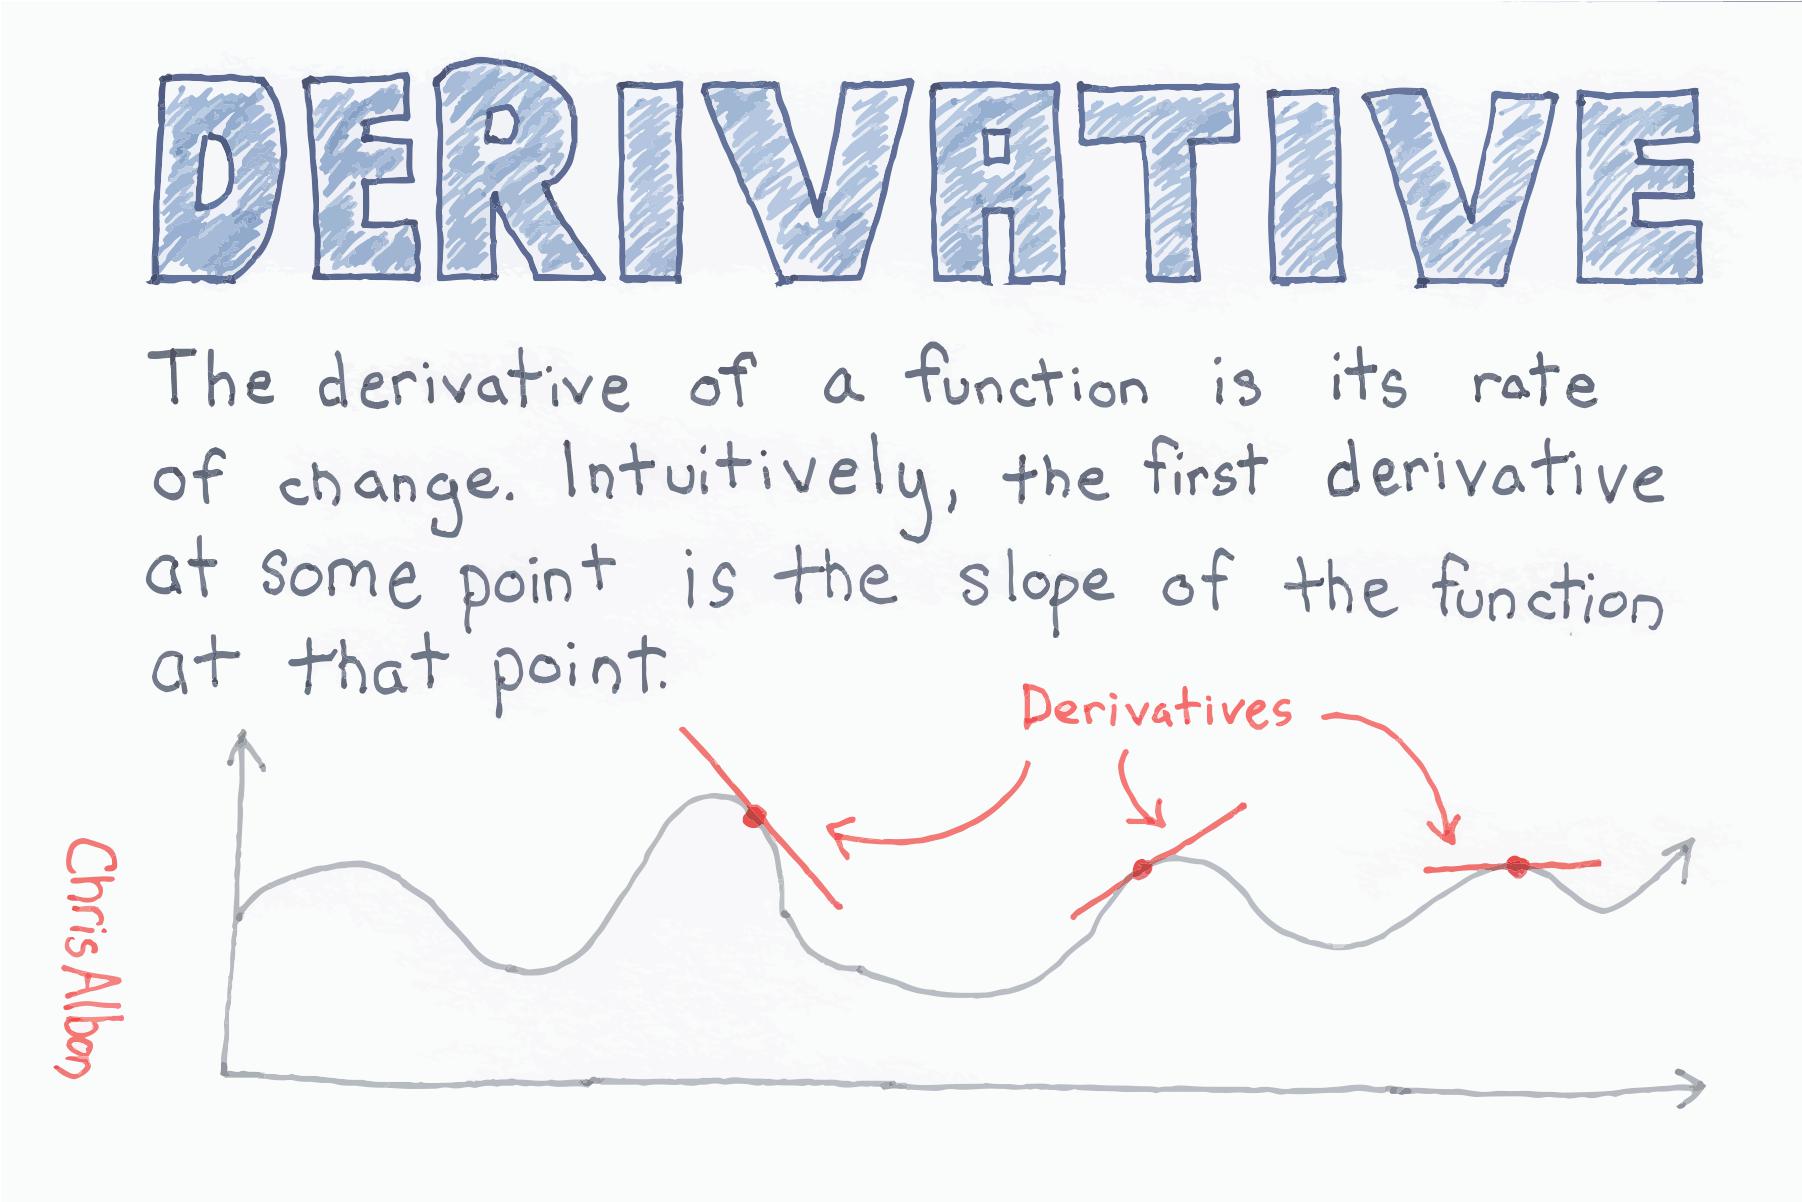 DERIVATIVE
The derivative of a function is its rate
of change. Intuitively, the first derivative
at some point is the slope of the function
at that point.
Derivatives
Chris Albon